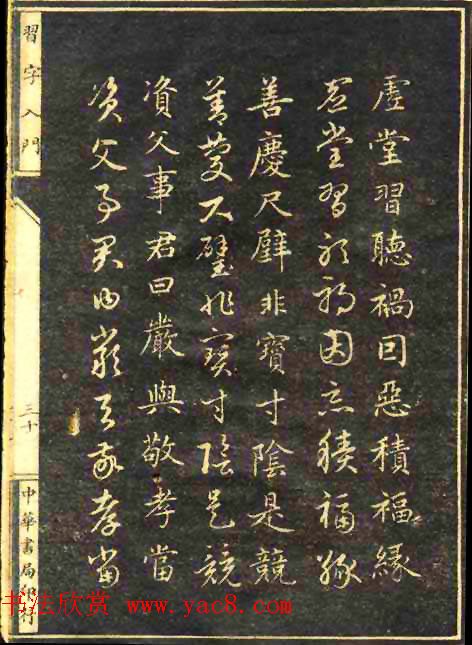 虛堂習聽禍因惡積福緣
虛堂習聽禍因惡積福緣
善慶尺璧非寶寸陰是競
善慶尺璧非寶寸陰是競
資父事君曰嚴與敬孝當
資父事君曰嚴與敬孝當
習字入門
三十
中華書局印行
书法欣赏 www.yac8.com